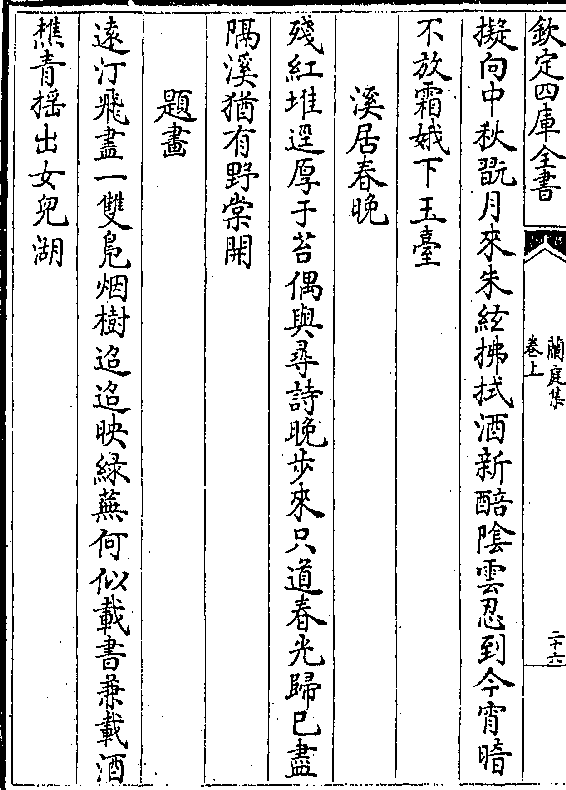 欽定四庫全書
蘭庭集
卷上
二十六
擬向中秋翫月來朱絃拂拭酒新醅陰雲忍到今宵暗
不放霜娥下玉臺
溪居春晚
殘紅堆逕厚于苔偶與尋詩晚步來只道春光歸已盡
隔溪猶有野棠開
題畫
遠汀飛盡一雙鳬烟樹迢迢映緑蕪何似載書兼載酒
樵青揺出女兒湖